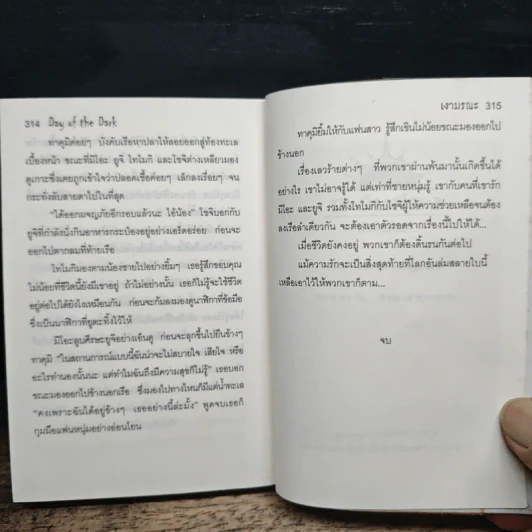 314 Day of the Dark
ทาคุมิค่อยๆ บังคับเรือหาปลาให้ลอยออกสู่ท้องทะเล
เบื้องหน้า ขณะที่มิโอะ ยูจิ โทโมกิ และโซจิต่างเหลียวมอง
ดูเกาะซึ่งเคยถูกเข้าใจว่าปลอดเชื้อค่อยๆ เล็กลงเรื่อยๆ จน
กระทั่งลับสายตาไปในที่สุด
"ได้ออกผจญภัยอีกรอบแล้วนะ ไอ้น้อง" โซจิบอกกับ
ยูจิที่กำลังนั่งกินอาหารกระป๋องอยู่อย่างเอร็ดอร่อย ก่อนจะ
ออกไปตากลมที่ท้ายเรือ
โทโมกิมองตามน้องชายไปอย่างยิ้มๆ เธอรู้สึกขอบคุณ
ไม่น้อยที่ชีวิตนี้ยังมีเขาอยู่ ถ้าไม่อย่างนั้น เธอก็ไม่รู้จะใช้ชีวิต
อยู่ต่อไปได้ยังไงเหมือนกัน ก่อนจะก้มลงมองดูนาฬิกาที่ข้อมือ
ซึ่งเป็นนาฬิกาที่ยูตะทิ้งไว้ให้
มิโอะลูบศีรษะยูจิอย่างเอ็นดู ก่อนจะลุกขึ้นไปยืนข้างๆ
ทาคุมิ "ในสถานการณ์แบบนี้ฉันน่าจะไม่สบายใจ เสียใจ หรือ
อะไรทำนองนั้นนะ แต่ทำไมฉันถึงมีความสุขก็ไม่รู้" เธอบอก
ขณะมองออกไปข้างนอกเรือ ซึ่งมองไปทางไหนก็มีแต่น้ำทะเล
"คงเพราะฉันได้อยู่ข้างๆ เธออย่างนี้ล่ะมั้ง" พูดจบเธอก็
กุมมือแฟนหนุ่มอย่างอ่อนโยน
เงามรณะ 315
ทาคุมิยิ้มให้กับแฟนสาว รู้สึกเขินไม่น้อยขณะมองออกไป
ข้างนอก
เรื่องเลวร้ายต่างๆ ที่พวกเขาผ่านพ้นมานั้นเกิดขึ้นได้
อย่างไร เขาไม่อาจรู้ได้ แต่เท่าที่ชายหนุ่มรู้ เขากับคนที่เขารัก
มิโอะ และยูจิ รวมทั้งโทโมกิกับโซจิผู้ให้ความช่วยเหลือจนต้อง
ลงเรือลำเดียวกัน จะต้องเอาตัวรอดจากเรื่องนี้ไปให้ได้...
เมื่อชีวิตยังคงอยู่ พวกเขาก็ต้องดิ้นรนกันต่อไป
แม้ความรักจะเป็นสิ่งสุดท้ายที่โลกอันล่มสลายใบนี้
เหลือเอาไว้ให้พวกเขาก็ตาม...
จบ